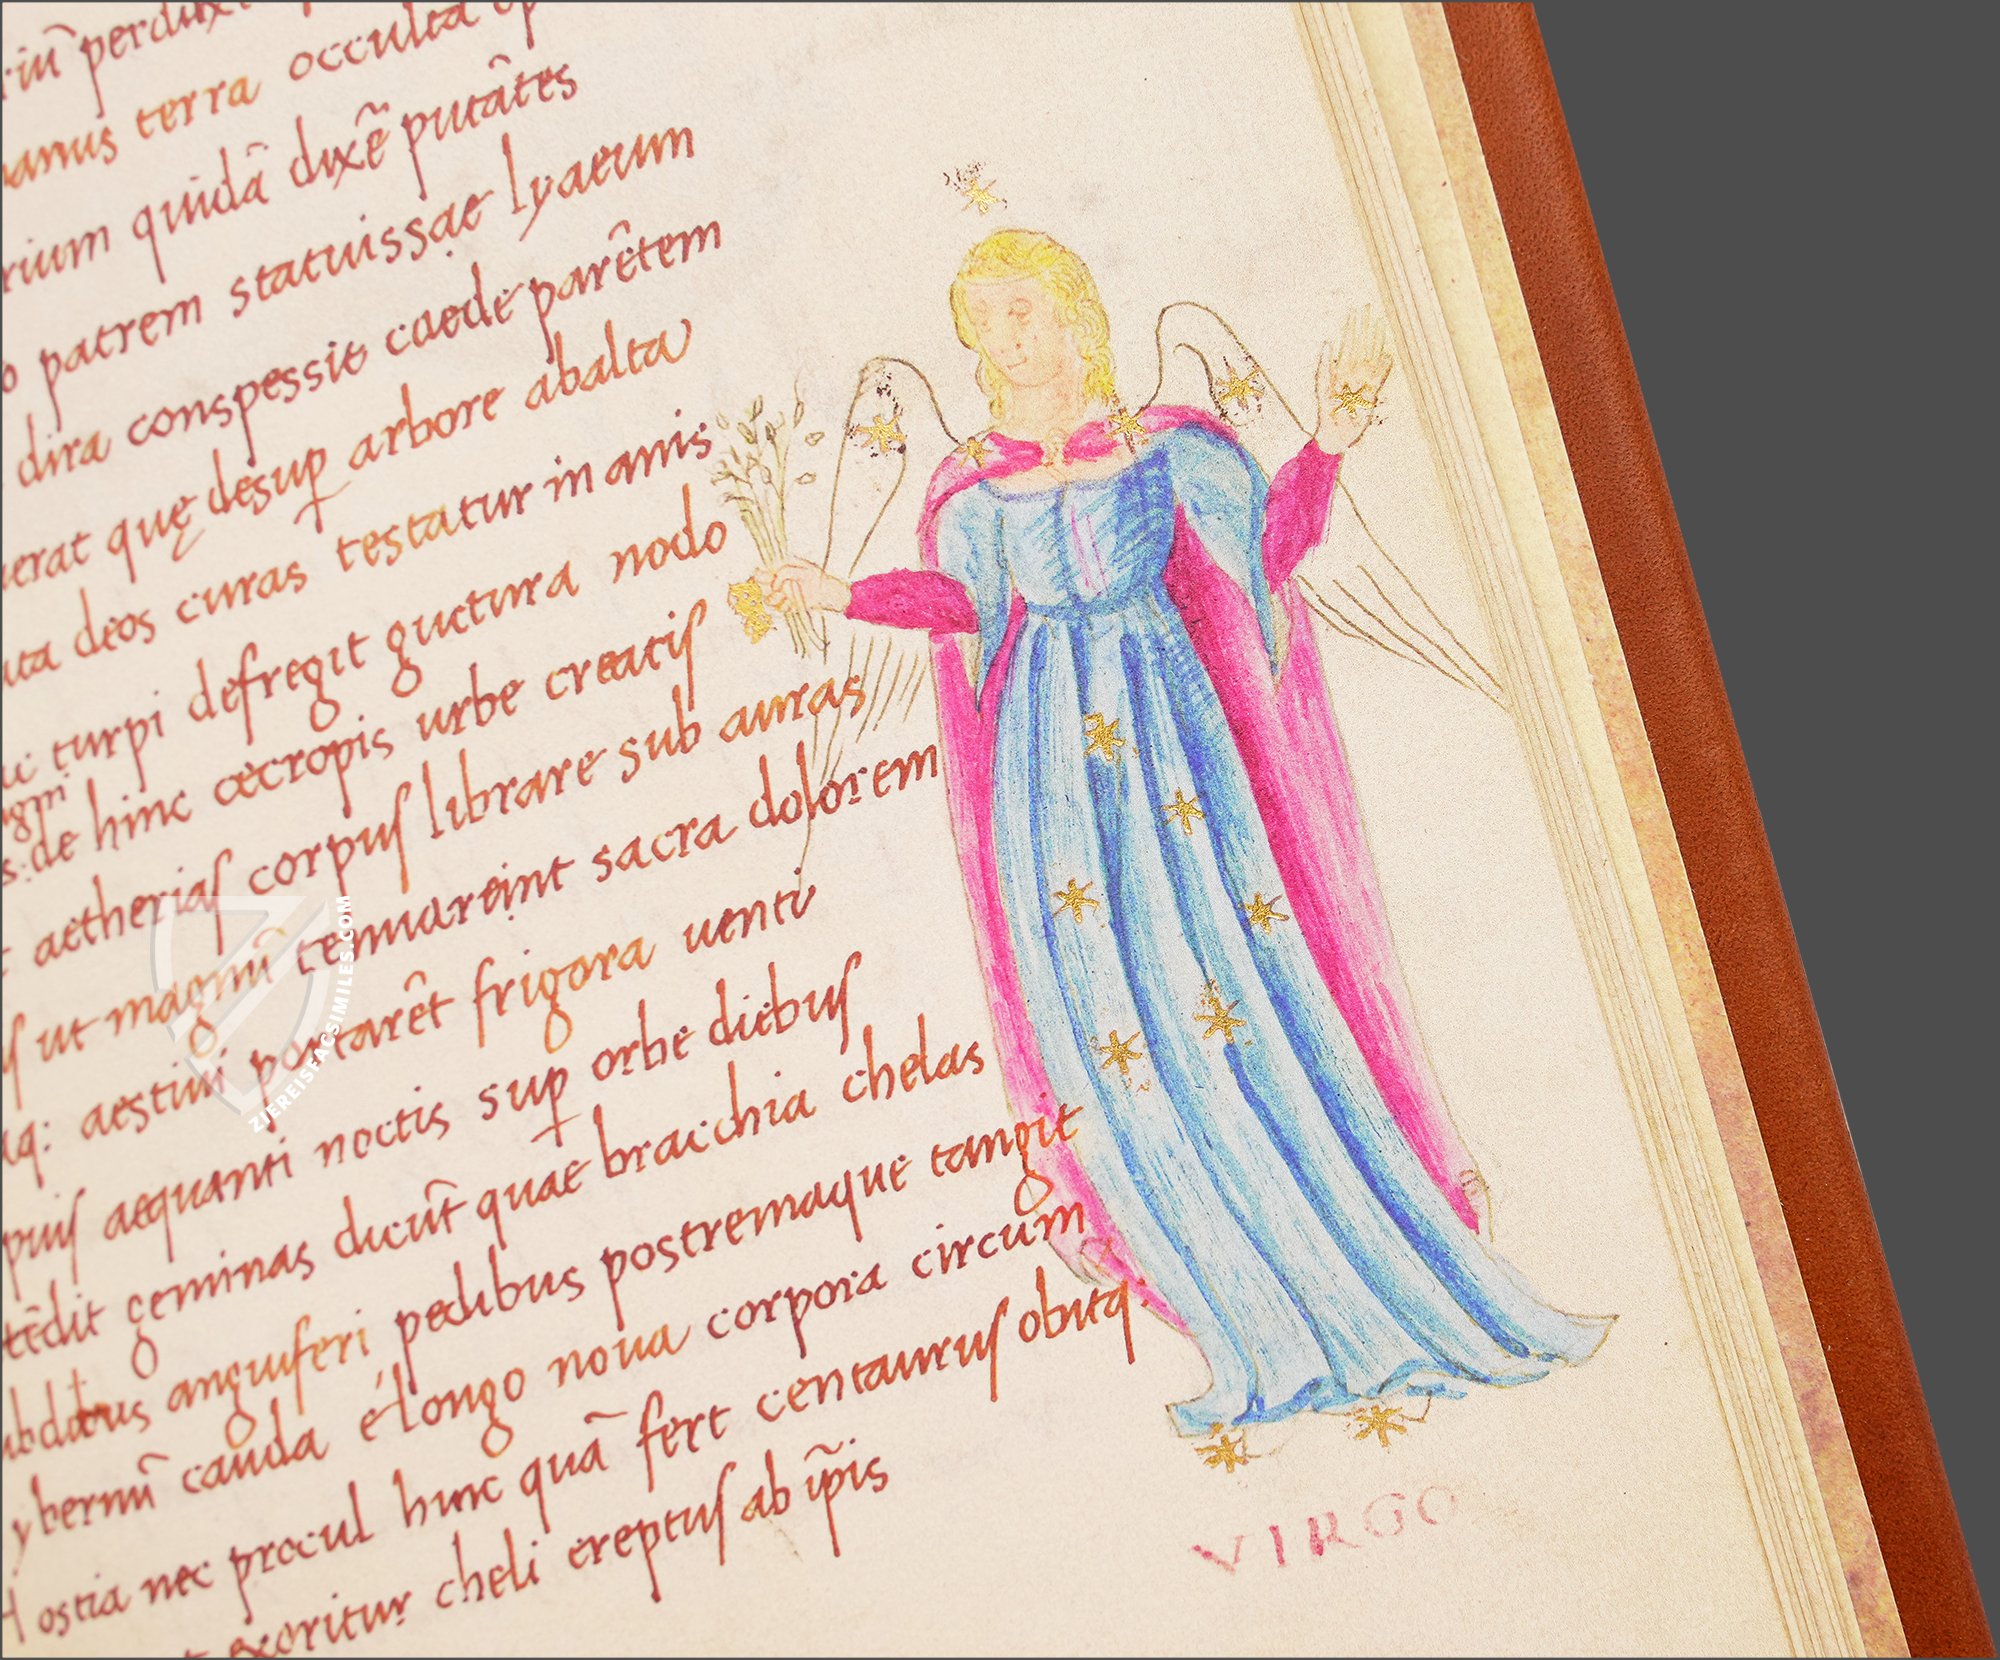 riū perdux
manus terra occulta
rium quidā dixē putâtes
patrem statuissae lyaeum
dira conspessit caede parêtem
uerat quę desup arbore abalta
deos curas testatur in amis
turpi defregit guctura nodo
de hinc cecropis urbe creatis
aetherias corpus librare sub auras
ut magnū temuareint sacra dolorem
aestiui portarêt frigora uenti
aequanti noctis sup orbe diebus
tēdit geminas ducūt quae bracchia chelas
anguiferi pedibus postremaque tangit
ybernū cauda é longo noua corpora circum
Hostia nec procul hunc quā fert centaurus obutq:
exoritur cheli ereptus ab ip̄is
VIRGO
ZIEREISFACSIMILES.COM